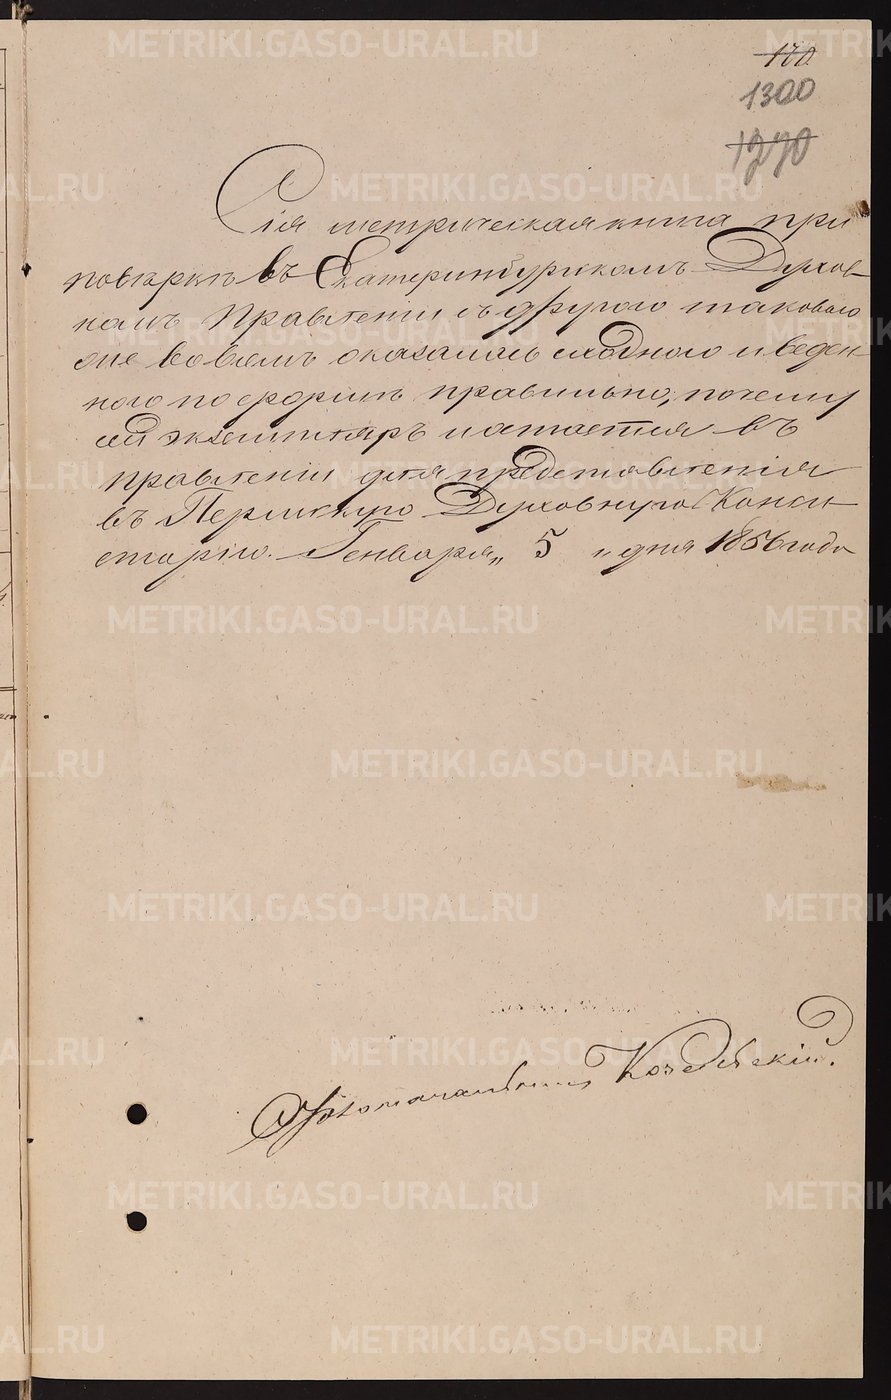 170
1300
1270
Сія метрическая книга при
повѣркѣ въ Екатеринбургскомъ Духов-
номъ Правленіи съ другою таковою
оне во всемъ оказалась сходною и веден-
ного по формѣ правильно, почему
сей экземпляръ и
въ
правленіи для представленія
въ Пермскую Духовную Конси-
сторію. Генваря „ 5 „ дня 1856 года
METRIKI.GASO-URAL.RU